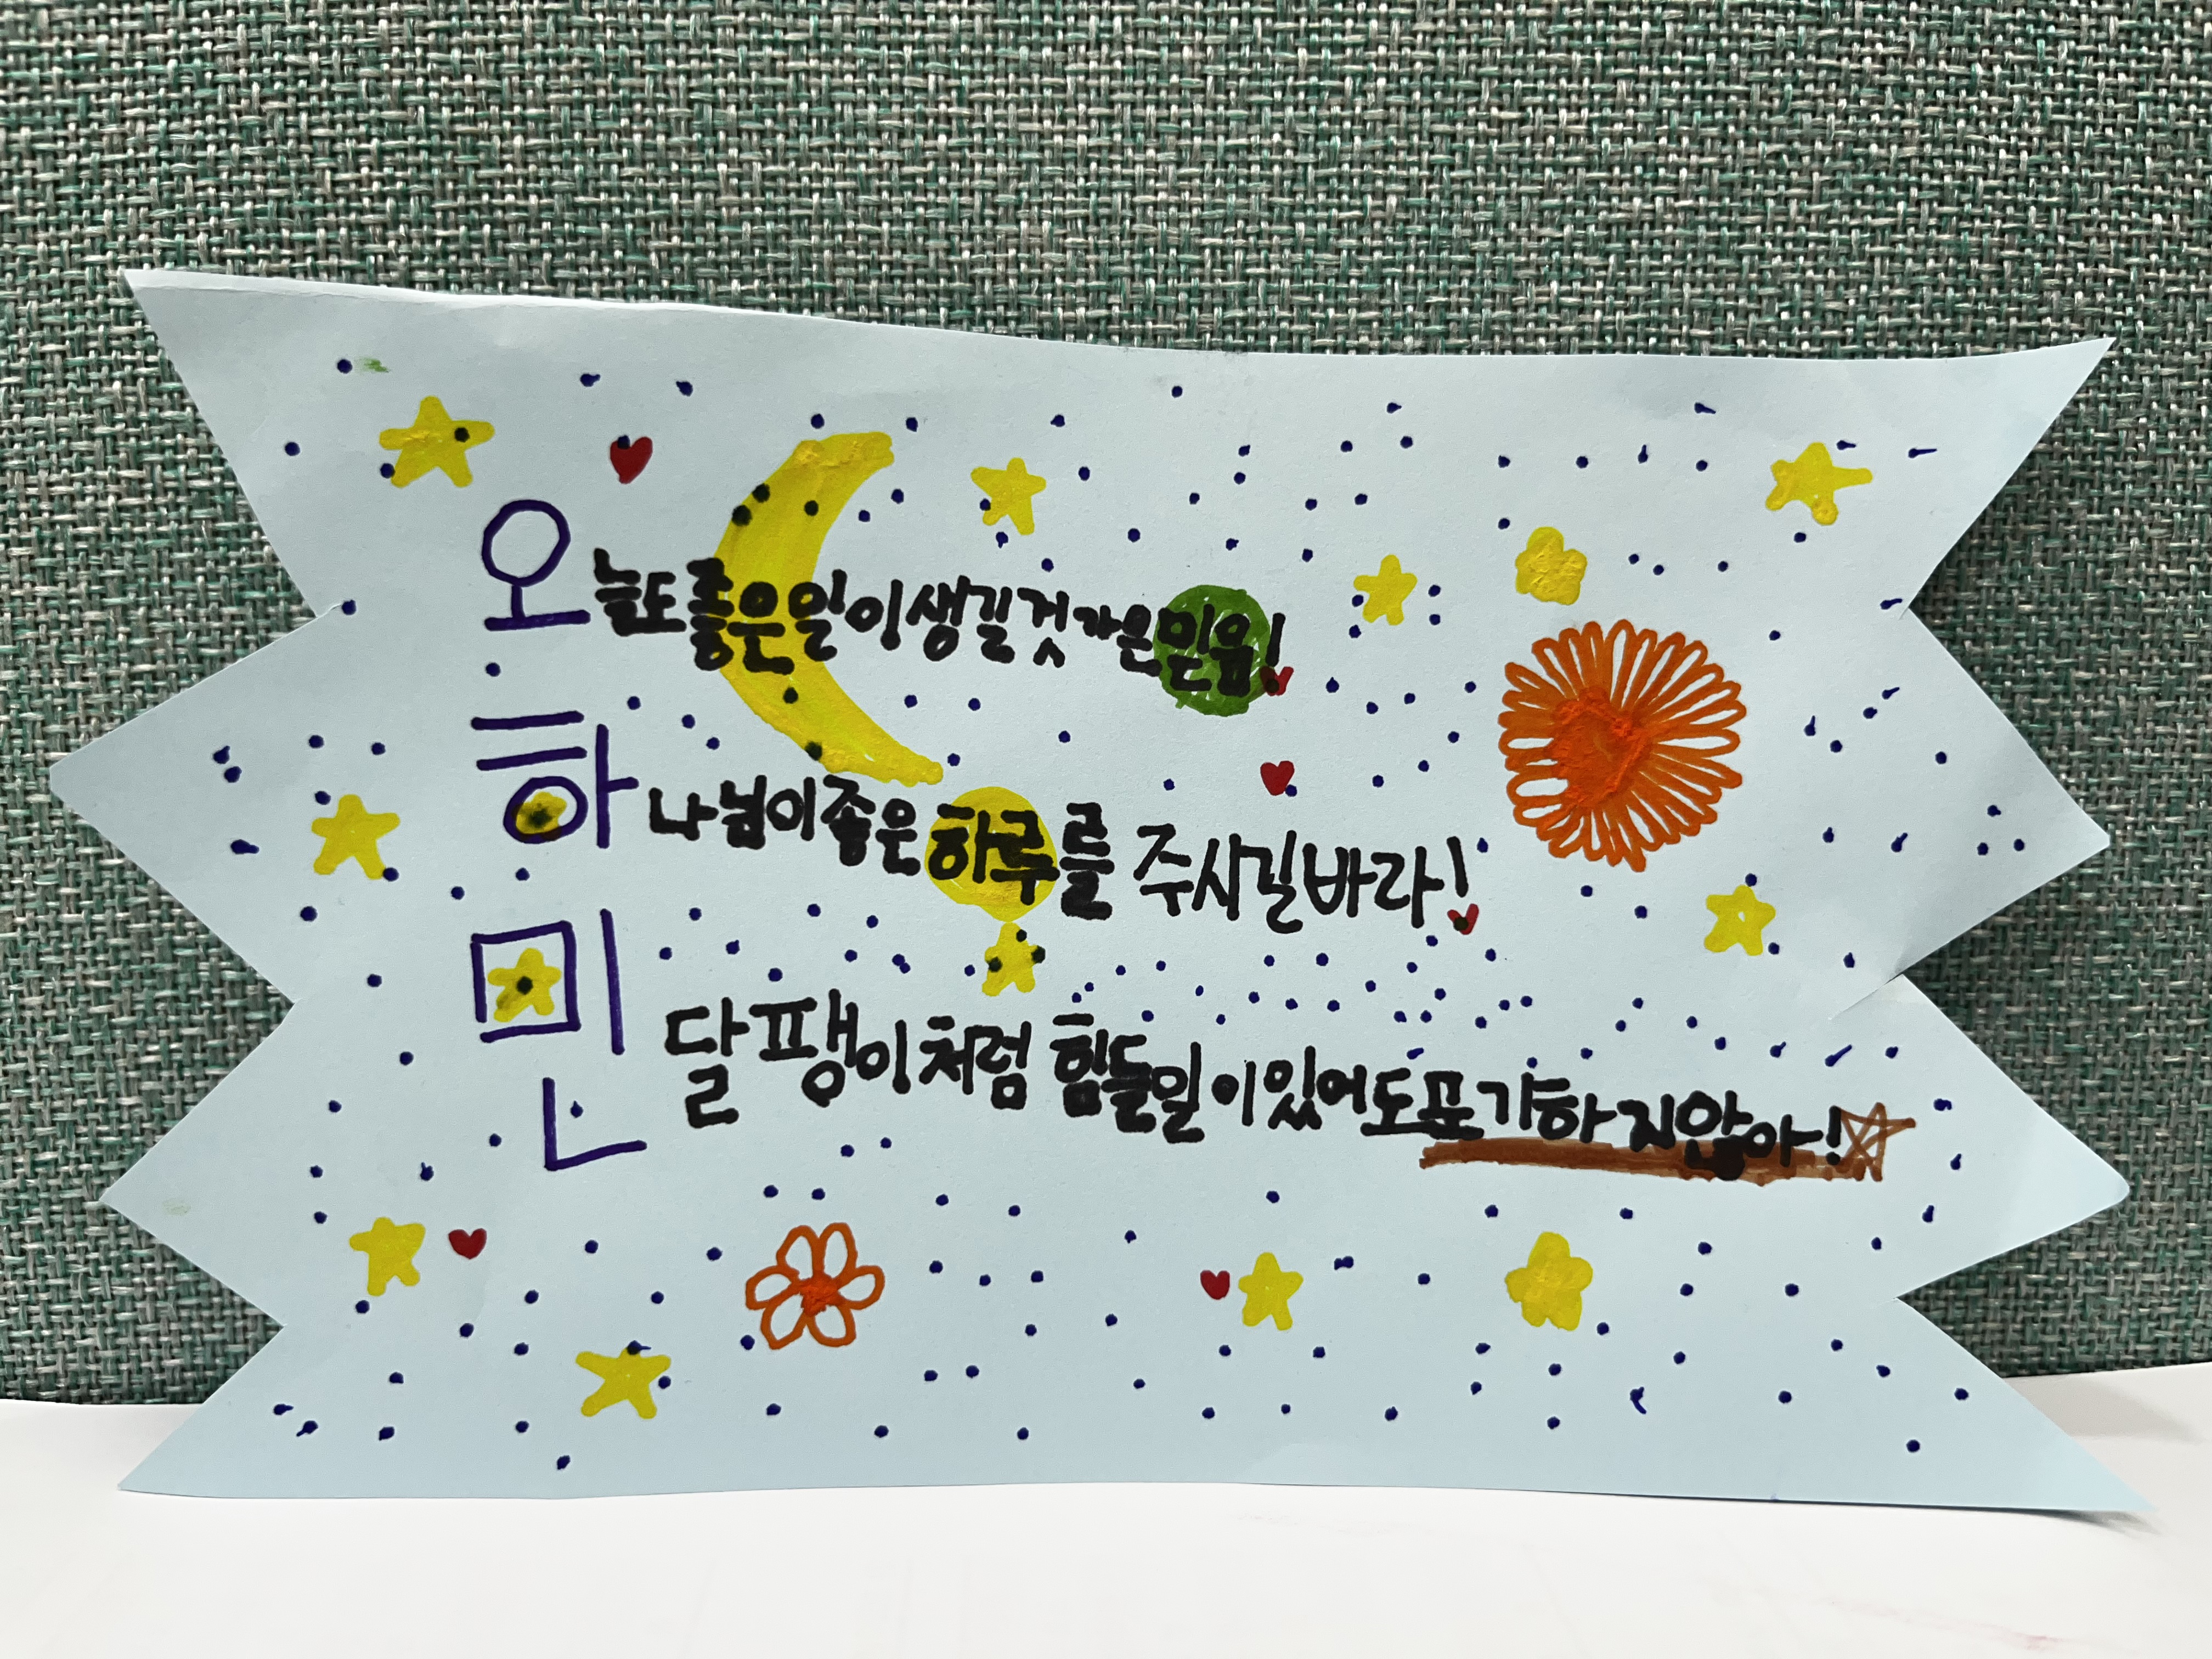 오늘도좋은일이생길것 가은믿음!
하나님이좋은하루를 주시길바라!
민달팽이처럼 힘들일이있어도포기하지않아!